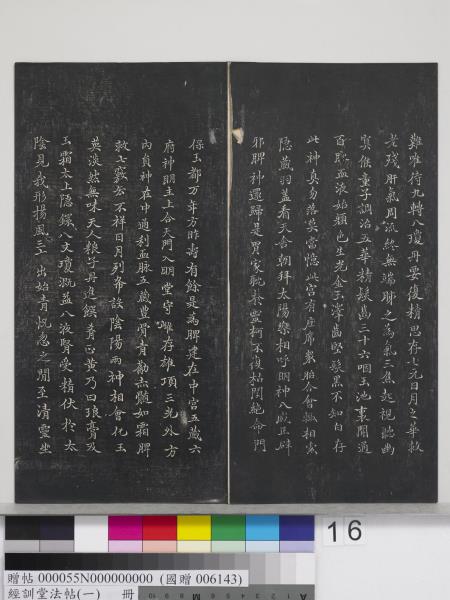 難唯待九轉八瓊丹要復精思存七元日月之華救
老殘肝氣周流終無端肺之為氣三焦起視聽幽
冥候童子調治五華精髮齒三十六咽玉池裏開通
百脈血液始顏色生光金玉澤齒堅髮黑不知白存
此神真勿落當憶此宮有座席衆合會轉相索
隱藏羽蓋看天舍朝拜太陽樂相呼明神八威正辟
邪脾神還歸是胃家耽養靈柯不復枯閉絕命門
保玉都万年方昨壽有餘是為脾建在中宮五藏六
府神明主上合天門入明堂守雌存雄頂三光外方
內員神在中通利血脉五藏豐骨青筋赤髓如霜脾
救七竅去不祥日月列希設陰陽兩神相會化玉
英淡然無味天人粮子丹進饌肴正黃乃曰琅膏及
玉霜太上隱鐶八文瓊溉益八液腎受精伏於太
陰見我形揚風三出始青恍惚之間至清靈坐
16
贈帖 000055N000000000 (國贈 006143)
經訓堂法帖(一) 冊